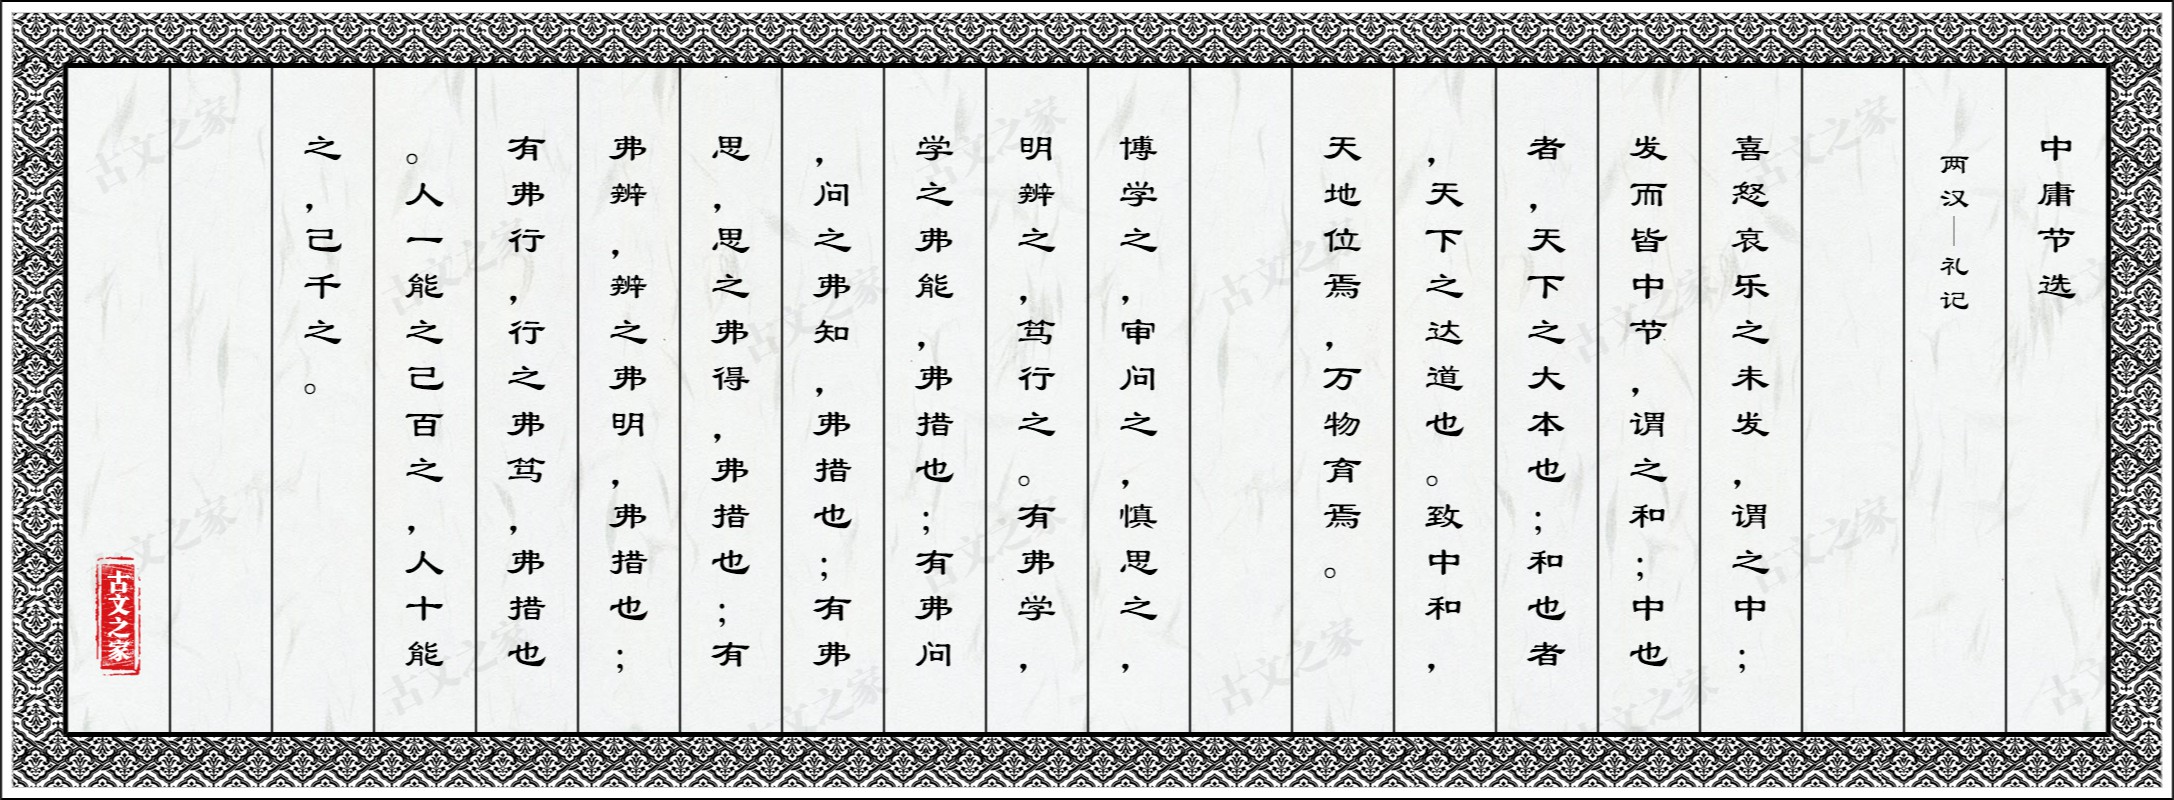 中庸节选
两汉—礼记
喜怒哀乐之未发，谓之中；
发而皆中节，谓之和；中也
者，天下之大本也；和也者
，天下之达道也。致中和，
天地位焉，万物育焉。
博学之，审问之，慎思之，
明辨之，笃行之。有弗学，
学之弗能，弗措也；有弗问
，问之弗知，弗措也；有弗
思，思之弗得，弗措也；有
弗辨，辨之弗明，弗措也；
有弗行，行之弗笃，弗措也
。人一能之己百之，人十能
之，己千之。
古文之家